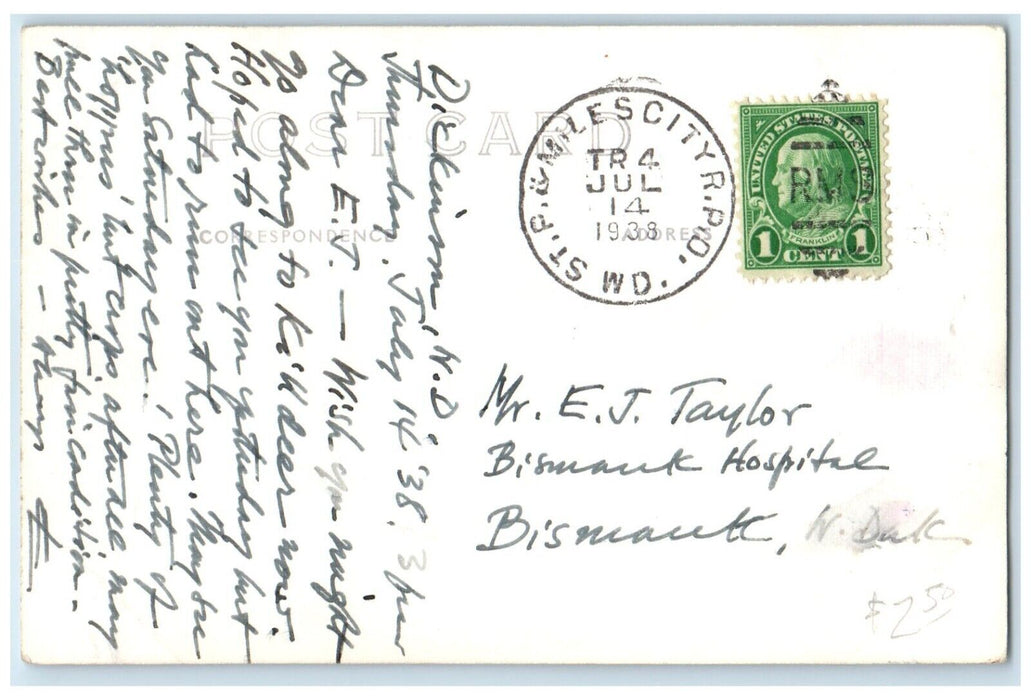 POST CARD
CORRESPONDENCE
ADDRESS
Dickinson, N.D.
Thursday, July 14 '38, 3 pm
Dear E.J. — Wish you might
go along to Killdeer now.
Hoped to see you yesterday but
had to run out here. May see
you Saturday eve. Plenty of
'hoppers, but crops, after all, may
pull thru in pretty fine condition.
Best wishes —
ST. P. & MILES CITY R.P.O.
TR 4
JUL
14
1938
WD.
RMS
UNITED STATES POSTAGE
FRANKLIN
1 CENT 1
Mr. E. J. Taylor
Bismarck Hospital
Bismarck, N. Dak
$2.50